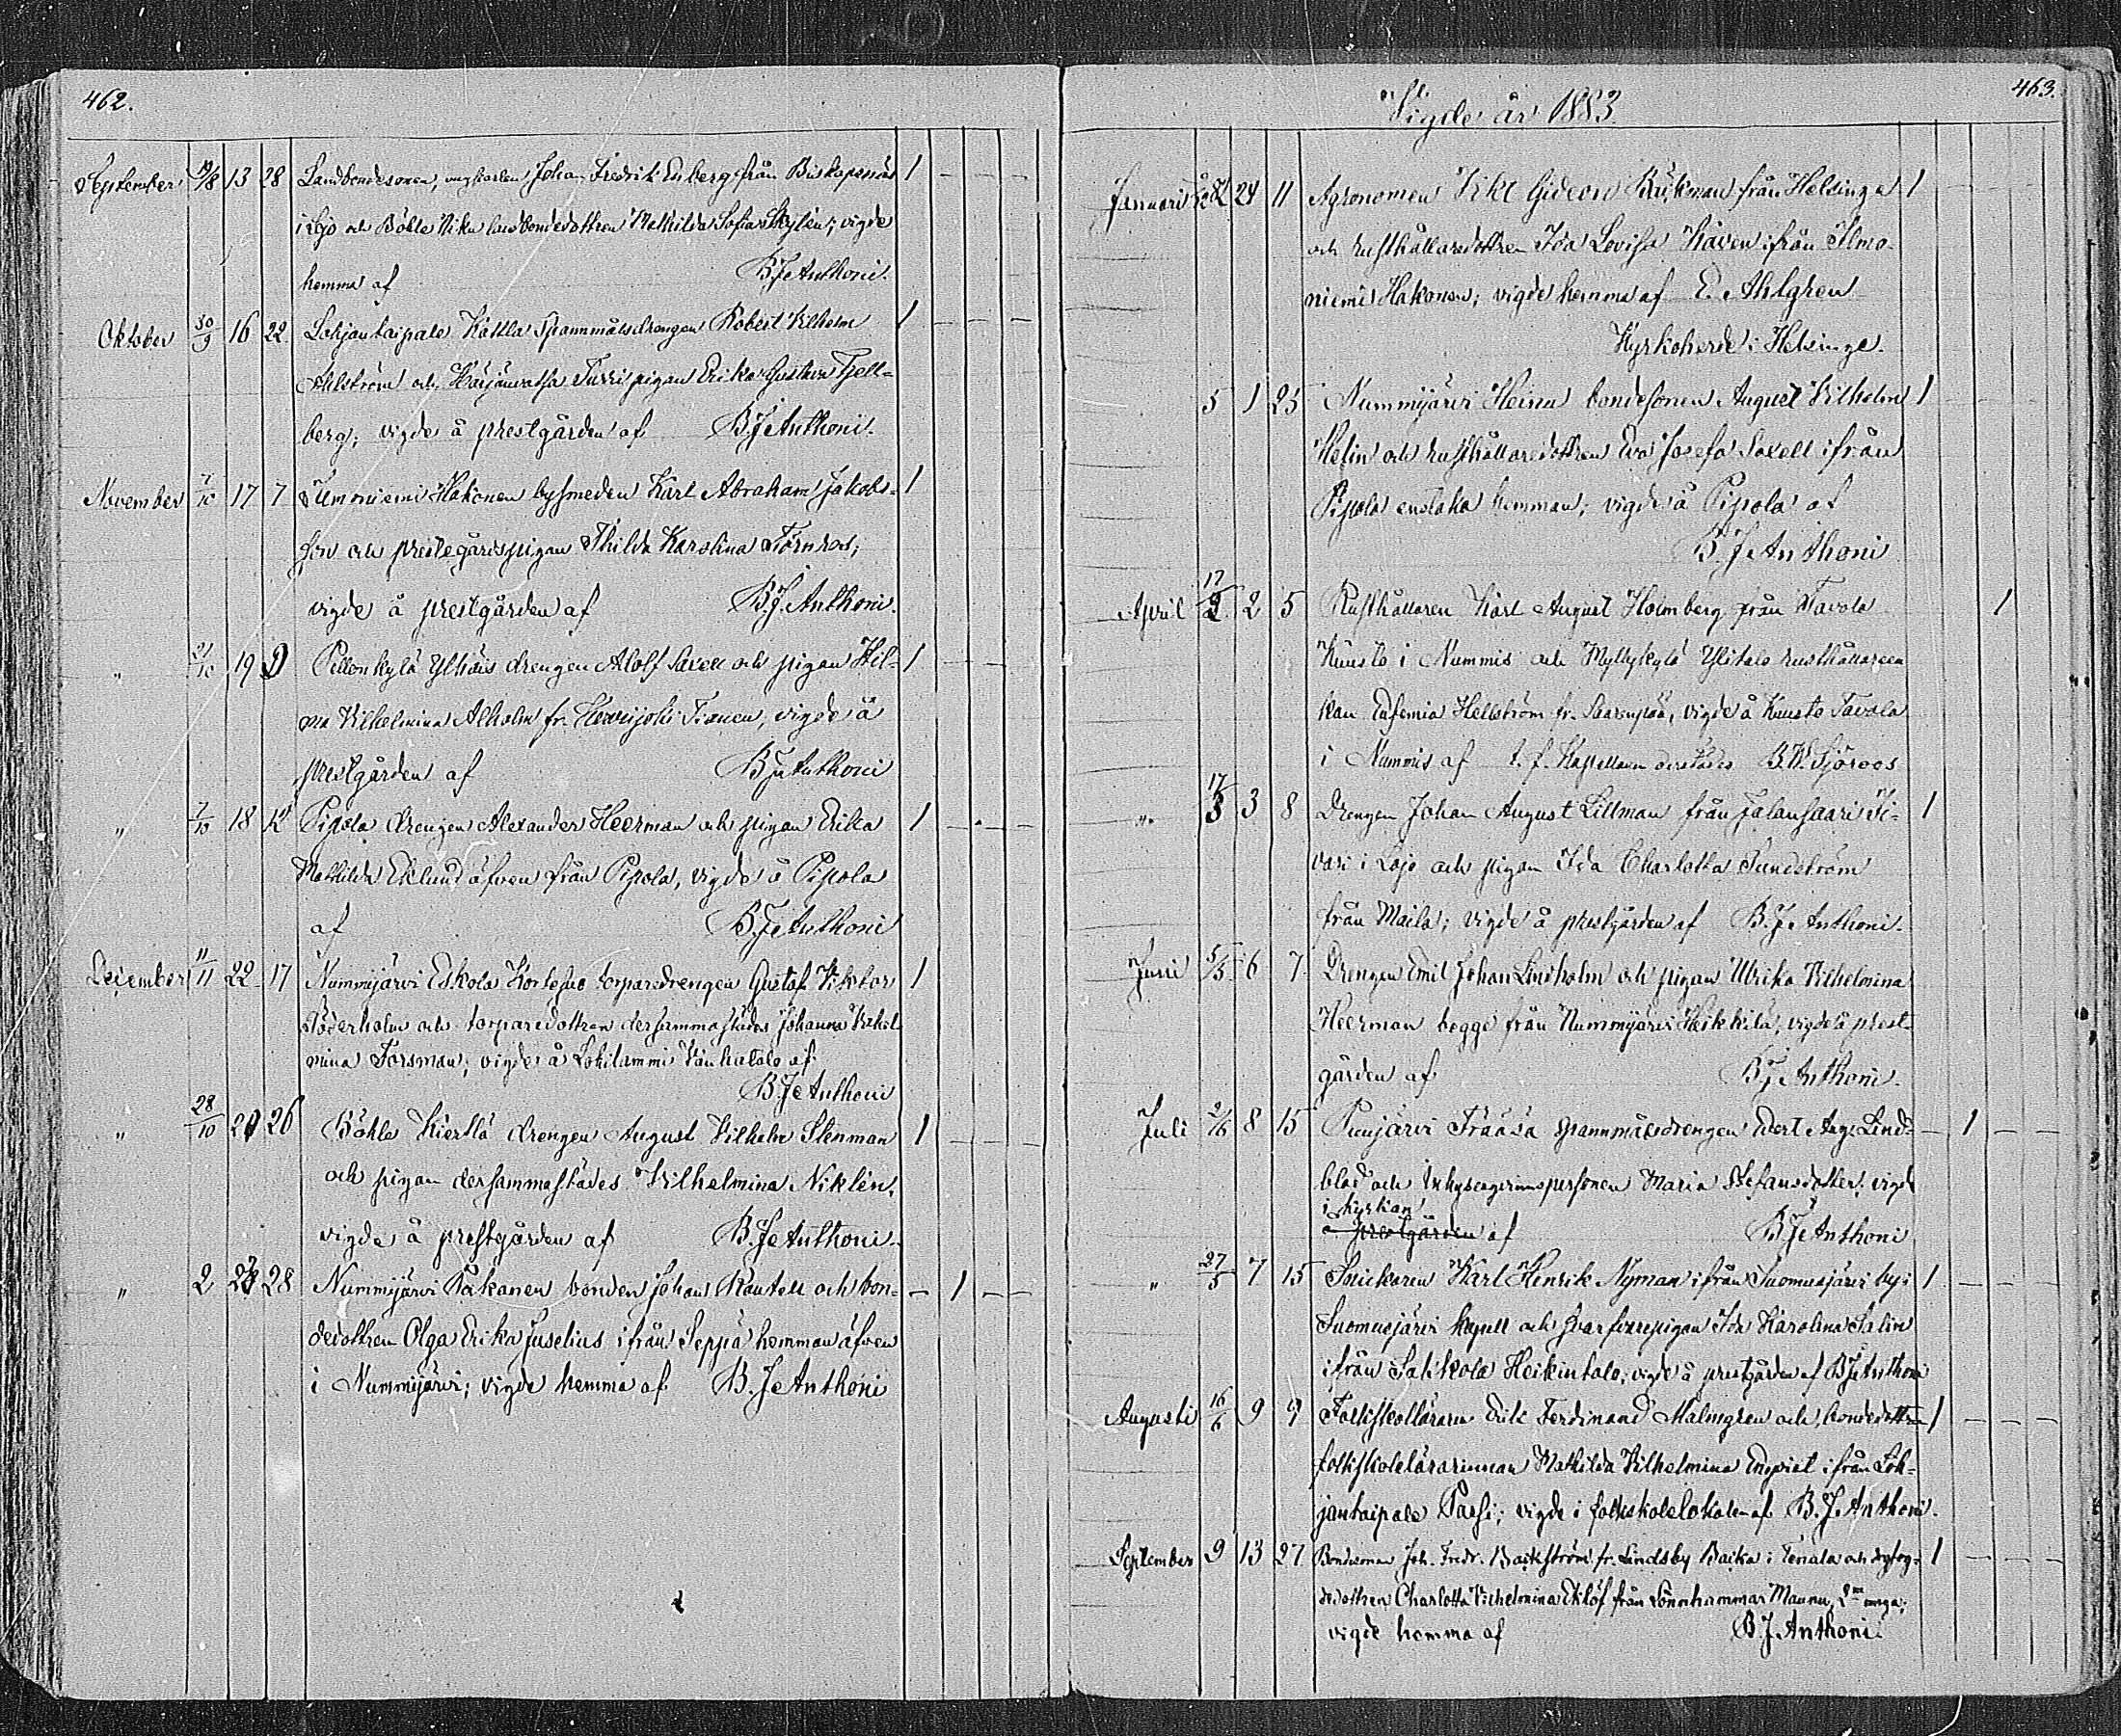 462.
September 19/8 13 28 Landbondesonen, ungkarlen Johan Fredrik Enberg från Biskopsnäs 1
i Lojo och Böhle Niku landbondedottren Mathilda Sofia Skytén; vigde
hemma af B.J. Anthoni.
Oktober 30/9 16 22 Lohjantaipale Kattla Spannmålsdrengen Robert Vilhelm 1
Ahlström och Härjänvatsa Turri pigan Erika Gustava Fjell-
berg; vigde å prestgården af B.J. Anthoni.
November 7/10 17 7 Ilmoniemi Hakonen bysmeden Karl Abraham Jakobs- 1
son och prestegårdspigan Thilda Karolina Törnroos;
vigde å prestgården af B.J. Anthoni.
" 21/10 19 9 Pellonkylä Ylhäis drengen Alolf Saxell och pigan Hil- 1
ma Vilhelmina Alholm fr. Hevrijoki Tianen, vigde å
prestgården af B.J. Anthoni
" 7/10 18 12 Pipola drengen Alexander Heerman och pigan Erika 1
Mathilda Eklund äfven från Pipola, vigde å Pipola
af B.J. Anthoni
December 11/11 22 17 Nummijärvi Eskola Kortesuo torparedrengen Gustaf Viktor 1
Söderholm och torparedottren dersammastädes Johanna Vilhel-
mina Forsman; vigde å Lohilammi Vanhatalo af
B.J. Anthoni
" 28/10 20 26 Böhle Kierlä drengen August Vilhelm Stenman 1
och pigan dersammastädes Vilhelmina Niklin,
vigde å prestgården af B.J. Anthoni.
" 2 23 28 Nummijärvi Pakanen bonden Johan Rautell och bon- 1
dedottren Olga Erika Juselius ifrån Seppä hemman äfven
i Nummijärvi; vigde hemma af B.J. Anthoni
463.
Vigde år 1883.
Januari 24 11 Agronomen Vikt. Gideon Brükman från Helsinge 1
och rusthållaredottren Ida Lovisa Kaven ifrån Ilmo-
niemi Hakonen; vigde hemma af E. Ahlgren
Kyrkoherde i Helsinge.
5 1 25 Nummijärvi Heinu bondesonen August Vilhelm 1
Helin och rusthållaredottren Eva Josefa Saxell ifrån
Pipola enstaka hemman; vigde å Pipola af
B.J. Anthoni
April 17/2 2 5 Rusthållaren Karl August Holmberg från Tavola 1
Kuusto i Nummis och Myllykylä Ylitalo rusthållareen
kan Eufemia Hellström fr. Saarenpää, vigde å Kuusto Tavola
i Nummis af t.f. Kapellanen derstädes B.W. Sjöroos
" 17/3 3 8 Drengen Johan August Lillman från Jalansaari Ki- 1
vari i Lojo och pigan Ida Charlotta Sundström
från Maila; vigde å prestgården af B.J. Anthoni.
Juni 5/5 6 7 Drengen Emil Johan Lindholm och pigan Ulrika Vilhelmina
Heerman begge från Nummijärvi Heikkilä, vigde å prest-
gården af B.J. Anthoni.
Juli 2/6 8 15 Puujärvi Fräsä spannmålsdrengen Evert Aug. Lind- 1
blad och Inhysesqvinnspersonen Maria Stefansdotter, vigde
i kyrkan
å prestgården af B.J. Anthoni
" 27/5 7 15 Snickaren Karl Henrik Nyman ifrån Suomusjärvi by i 1
Suomusjärvi kapell och Garfvarepigan Ida Karolina Salin
ifrån Sakkola Heikintalo; vigde å prestgården af B.J. Anthoni
Augusti 16/6 9 9 Folkskolläraren Erik Ferdinand Malmgren och bondedottren 1
folkskolelärarinnan Mathilda Vilhelmina Enqvist ifrån Loh-
jantaipale Passi; vigde i folkskolelokalen af B.J. Anthoni.
September 9 13 27 Bondsonen Joh. Fredr. Backström fr. Lindsby Backa i Tenala och 1
dottren Charlotta Vilhelmina Eklöf från Lönnhammar Maunu,
vigde hemma af B.J. Anthoni.